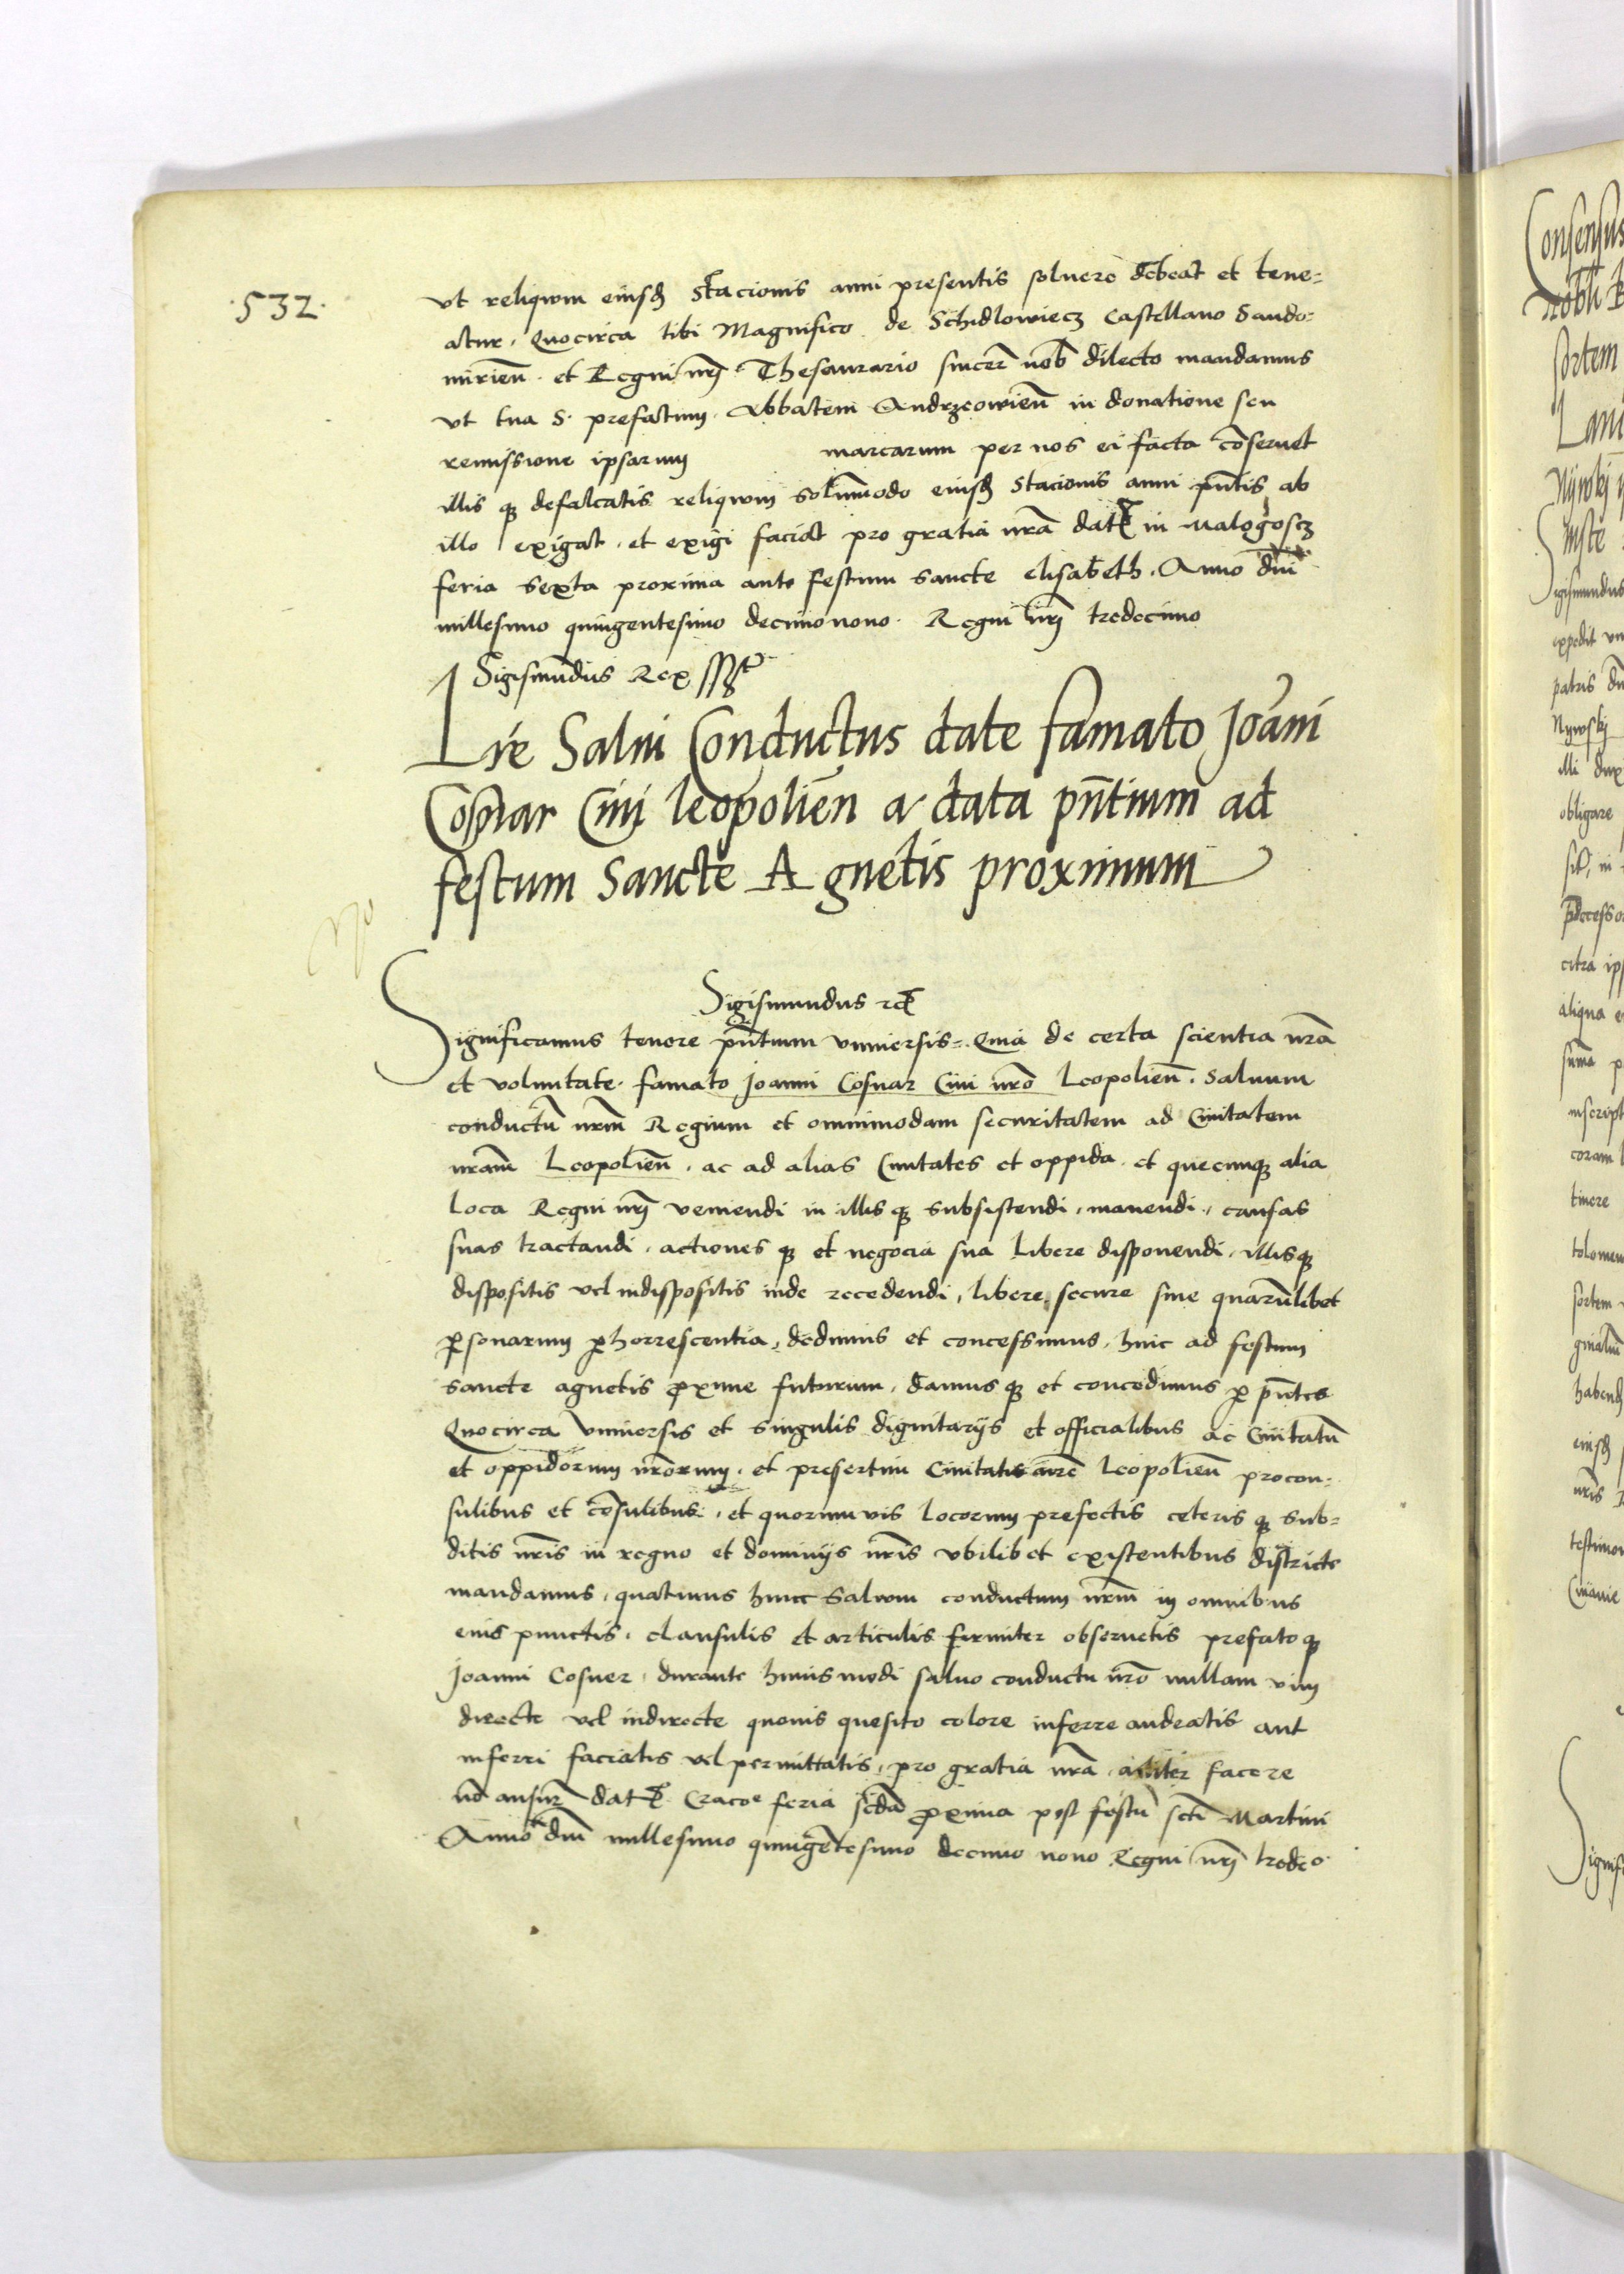 ·532·
vt reliqwm eiusđ Stacionis anni presentis soluere debeat et tene=
atur. Quocirca tibi Magnifico de Schidlowiecz Castellano Sando=
mirien̄. et Regni nr̄j Thesaurario sincer̄ nob̄ dilecto mandamus
vt tua S. prefatum Abbatem Andrzeowien̄ in donatione seu
remissione ipsarum marcarum per nos ei facta cōseruet
illis qꝫ defalcatis reliqwm solūmodo eiusđ Stacionis anni pn̄tis ab
illo exigat et exigi faciat pro gratia nrā dat̄ in Malogoscz
feria sexta proxima ante festum sancte elisabeth. Anno dn̄i
millesimo quingentesimo decimonono. Regni nr̄j tredecimo
Sigismūdus Rex sszt
Lr̄e Salui Conductus date famato Joāni
Cosnar Ciui leopolien̄ a data pn̄tium ad
festum Sancte Agnetis proximum
Sigismundus rc̄
Significamus tenore pn̄tium vniuersis. Quia de certa scientia nrā
et voluntate. famato Joanni Cosnar Ciui nrō Leopolien̄. saluum
conductū nrm̄ Regium et omnimodam securitatem ad Ciuitatem
nram̄ Leopolien̄. ac ad alias Ciuitates et oppida et quecunqꝫ alia
loca Regni nr̄j veniendi in illis qꝫ subsistendi, manendi, causas
suas tractandi. actiones qꝫ et negocia sua libere disponendi. illisqꝫ
dispositis vel indispositis inde recedendi, libere, secure sine quarūlibet
ꝑsonarum ꝑhorrescentia, dedimus et concessimus, hinc ad festum
sancte agnetis ꝓxime futurum, damus qꝫ et concedimus ꝑ pn̄tes
Quocirca vniuersis et singulis dignitarijs et officialibus ac Ciuitatū
et oppidorum nrōrum, et presertim Ciuitatis nrē Leopolien̄ procon=
sulibus et cōsulibus, et quorumuis locorum prefectis ceteris qꝫ sub=
ditis nrīs in regno et dominijs nrīs vbilibet existentibus districte
mandamus, quatinus hunc saluum conductum nrm̄ in omnibus
eius punctis, clausulis et articulis firmiter obseruetis prefato qꝫ
Joanni Cosner, durante huiusmodi saluo conductu nrō nullam vim
directe vel indirecte quouis quesito colore inferre audeatis aut
inferri faciatis vel permittatis, pro gratia nrā aliter facere
nō ansur̄ dat̄ Cracoe feria scđa ꝓxima post festū scti Martini
Anno dn̄i millesimo quingētesimo decimo nono Regni nr̄j tredeo